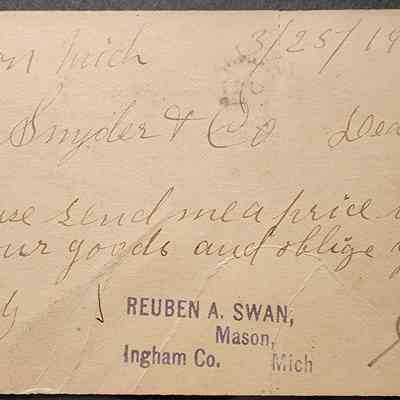 on Mich 3/25/19
Snyder & Co Dea
use send me a price
our goods and oblige y
REUBEN A. SWAN,
Mason,
Ingham Co. Mich